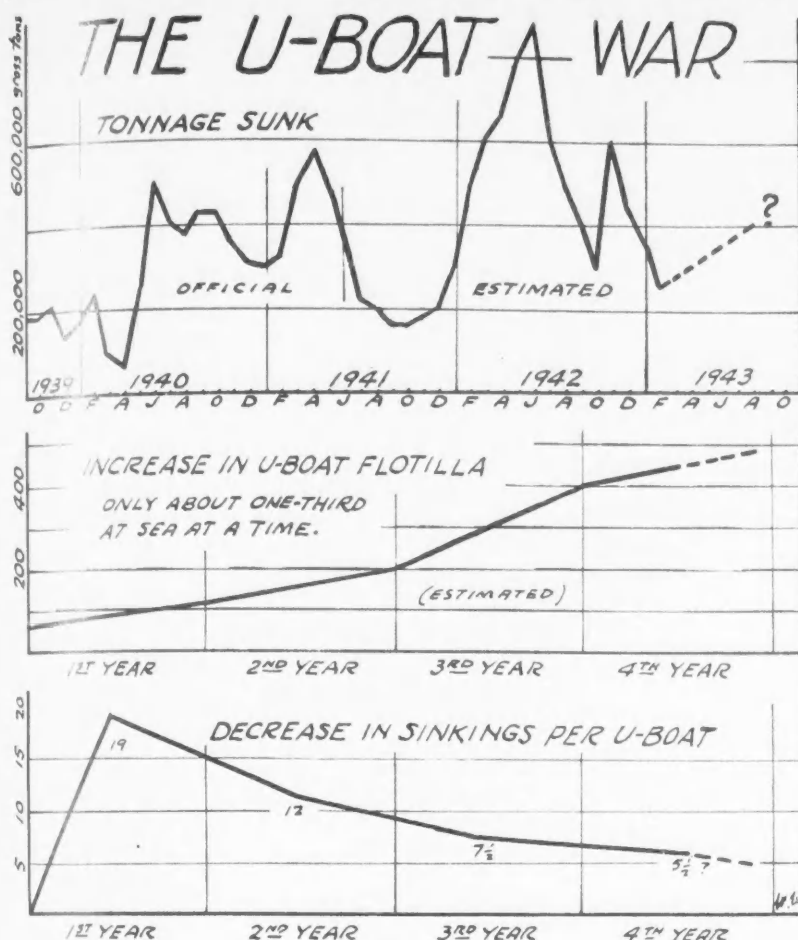 THE U-BOAT WAR
gross tons
600,000
200,000
TONNAGE SUNK
OFFICIAL
ESTIMATED
?
1939 1940 1941 1942 1943
O D F A J A O D F A J A O D F A J A O D F A J A O
INCREASE IN U-BOAT FLOTILLA
ONLY ABOUT ONE-THIRD
AT SEA AT A TIME.
400
200
(ESTIMATED)
1ST YEAR 2ND YEAR 3RD YEAR 4TH YEAR
20
15
10
5
DECREASE IN SINKINGS PER U-BOAT
19
12
7½
5½ ?
1ST YEAR 2ND YEAR 3RD YEAR 4TH YEAR